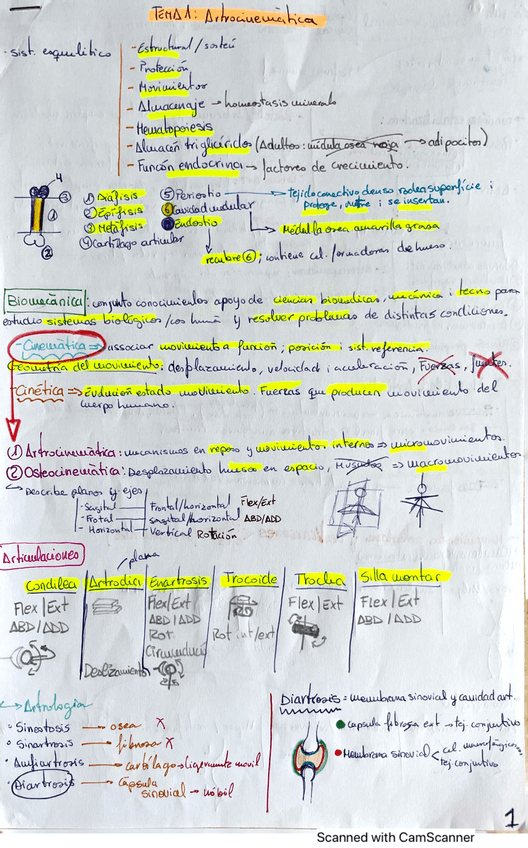 TEMA 1: Artrocinemática
- sist. esquelético
- Estructural / sostén
- Protección
- Movimientos
- Almacenaje → homeostasis minerals
- Hematopoiesis
- Almacén triglicéridos (Adultos: médula osea roja → adipocitos)
- Función endocrina → factores de crecimiento.
4
③
①
②
① Diáfisis
② Epífisis
③ Metáfisis
④ Cartílago articular
⑤ Periostio → Tejido conectivo denso rodea superficie i
protege, nutre i se insertan.
⑥ Cavidad medular → Médula osea amarilla grasa
Endostio
recubre ⑥; contiene cel. formadoras de hueso.
Biomecánica: conjunto conocimientos apoyo de ciencias biomédicas, mecánica i tecno para
estudio sistemas biológicos /cos humà y resolver problemas de distintas condiciones.
- Cinemática ⇒ associar movimiento a función; posición i sist. referencia.
Geometría del movimiento: desplazamiento, velocidad i aceleración, Fuerzas,
- Cinética ⇒ Evolución estado movimiento. Fuerzas que producen movimiento del
cuerpo humano.
① Artrocinemática: mecanismos en reposo y movimientos internos ⇒ micromovimientos.
② Osteocinemática: Desplazamiento huesos en espacio, Músculos ⇒ macromovimientos
↳ Describe planos y ejes
- Sagital Frontal/horizontal Flex/Ext
- Frotal Sagital/horizontal ABD/ADD
- Horizontal Vertical Rotación
Articulaciones
plana
Condilea Artrodia Enartrosis Trocoide Troclea Silla montar
Flex/Ext Flex/Ext Flex/Ext Flex/Ext
ABD/ADD ABD/ADD ABD/ADD
Rot. Rot. int/ext
Circunducció
Deslizamiento
↔ Artrología
· Sinostosis → osea X
· Sinartrosis → fibrosa X
· Amfiartrosis → cartílago → ligeramente movil
· Diartrosis → cápsula
sinovial → móbil
Diartrosis = membrana sinovial y cavidad art.
capsula fibrosa ext → tej. conjuntivo
Membrana sinovial cel. macrofágicas
tej. conjuntivo
1
Scanned with CamScanner